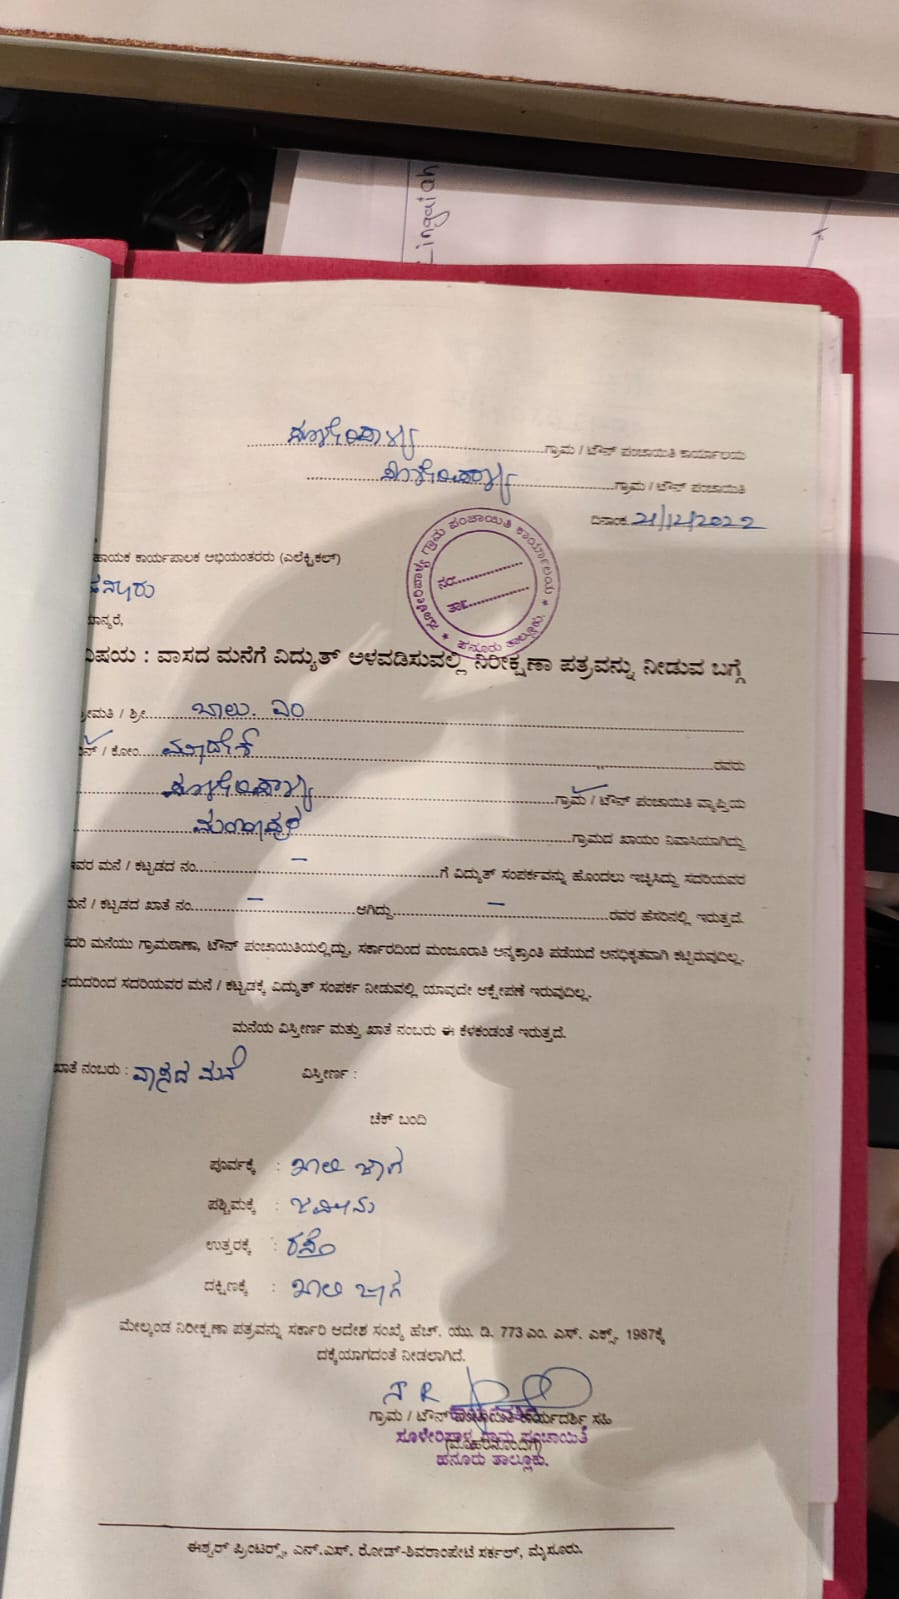 Lingaiah
ಸೂಳೇರಿಪಾಳ್ಯ ಗ್ರಾಮ / ಟೌನ್ ಪಂಚಾಯಿತಿ ಕಾರ್ಯಾಲಯ
ಸೂಳೇರಿಪಾಳ್ಯ ಗ್ರಾಮ / ಟೌನ್ ಪಂಚಾಯಿತಿ
ದಿನಾಂಕ 21/12/2022
ಸೂಳೇರಿಪಾಳ್ಯ ಗ್ರಾಮ ಪಂಚಾಯಿತಿ ಕಾರ್ಯಾಲಯ * ಹನೂರು ತಾಲ್ಲೂಕು. *
ನಂ.
ತಾ.
ಹಾಯಕ ಕಾರ್ಯಪಾಲಕ ಅಭಿಯಂತರರು (ಎಲೆಕ್ಟ್ರಿಕಲ್)
ಹನೂರು
ಮಾನ್ಯರೆ,
ವಿಷಯ : ವಾಸದ ಮನೆಗೆ ವಿದ್ಯುತ್ ಅಳವಡಿಸುವಲ್ಲಿ ನಿರೀಕ್ಷಣಾ ಪತ್ರವನ್ನು ನೀಡುವ ಬಗ್ಗೆ
ಶ್ರೀಮತಿ / ಶ್ರೀ ಬಾಲು. ಎಂ
ಬಿನ್ / ಕೋಂ ಮಾದೇಶ ರವರು
ಸೂಳೇರಿಪಾಳ್ಯ ಗ್ರಾಮ / ಟೌನ್ ಪಂಚಾಯಿತಿ ವ್ಯಾಪ್ತಿಯ
ಗ್ರಾಮದ ಖಾಯಂ ನಿವಾಸಿಯಾಗಿದ್ದು
ಇವರ ಮನೆ / ಕಟ್ಟಡದ ನಂ. – ಗೆ ವಿದ್ಯುತ್ ಸಂಪರ್ಕವನ್ನು ಹೊಂದಲು ಇಚ್ಛಿಸಿದ್ದು ಸದರಿಯವರ
ಮನೆ / ಕಟ್ಟಡದ ಖಾತೆ ನಂ. – ಆಗಿದ್ದು – ರವರ ಹೆಸರಿನಲ್ಲಿ ಇರುತ್ತದೆ.
ಸದರಿ ಮನೆಯು ಗ್ರಾಮಠಾಣಾ, ಟೌನ್ ಪಂಚಾಯಿತಿಯಲ್ಲಿದ್ದು, ಸರ್ಕಾರದಿಂದ ಮಂಜೂರಾತಿ ಅನ್ಯಕ್ರಾಂತಿ ಪಡೆಯದೆ ಅನಧಿಕೃತವಾಗಿ ಕಟ್ಟಿರುವುದಿಲ್ಲ.
ಆದುದರಿಂದ ಸದರಿಯವರ ಮನೆ / ಕಟ್ಟಡಕ್ಕೆ ವಿದ್ಯುತ್ ಸಂಪರ್ಕ ನೀಡುವಲ್ಲಿ ಯಾವುದೇ ಆಕ್ಷೇಪಣೆ ಇರುವುದಿಲ್ಲ.
ಮನೆಯ ವಿಸ್ತೀರ್ಣ ಮತ್ತು ಖಾತೆ ನಂಬರು ಈ ಕೆಳಕಂಡಂತೆ ಇರುತ್ತದೆ.
ಖಾತೆ ನಂಬರು : ವಾಸದ ಮನೆ ವಿಸ್ತೀರ್ಣ :
ಚೆಕ್ ಬಂದಿ
ಪೂರ್ವಕ್ಕೆ : ಖಾಲಿ ಜಾಗ
ಪಶ್ಚಿಮಕ್ಕೆ : ಜಮೀನು
ಉತ್ತರಕ್ಕೆ : ರಸ್ತೆ
ದಕ್ಷಿಣಕ್ಕೆ : ಖಾಲಿ ಜಾಗ
ಮೇಲ್ಕಂಡ ನಿರೀಕ್ಷಣಾ ಪತ್ರವನ್ನು ಸರ್ಕಾರಿ ಆದೇಶ ಸಂಖ್ಯೆ ಹೆಚ್. ಯು. ಡಿ. 773 ಎಂ. ಎಸ್. ಎಕ್ಸ್. 1987ಕ್ಕೆ
ದಕ್ಕೆಯಾಗದಂತೆ ನೀಡಲಾಗಿದೆ.
ಗ್ರಾಮ / ಟೌನ್ ಪಂಚಾಯಿತಿ ಕಾರ್ಯದರ್ಶಿ ಸಹಿ
(ಮೊಹರಿನೊಂದಿಗೆ)
ಸೂಳೇರಿಪಾಳ್ಯ ಗ್ರಾಮ ಪಂಚಾಯಿತಿ
ಹನೂರು ತಾಲ್ಲೂಕು.
ಈಶ್ವರ್ ಪ್ರಿಂಟರ್ಸ್, ಎನ್.ಎಸ್. ರೋಡ್-ಶಿವರಾಂಪೇಟೆ ಸರ್ಕಲ್, ಮೈಸೂರು.